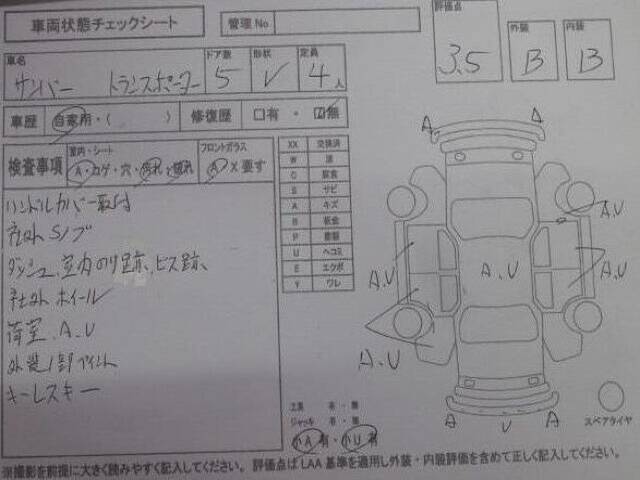 車両状態チェックシート
管理No
評価点
3.5
外装
B
内装
B
車名
サンバー トランスポーター
ドア数
5
形状
V
定員
4人
車歴
自家用・( )
修復歴
□有・☑無
検査事項
室内・シート
A・コゲ・穴・汚れ・切れ
フロントガラス
A X要す
XX 交換済
W 波
C 腐食
S サビ
A キズ
B 板金
P 塗装
U ヘコミ
E エクボ
Y ワレ
ハンドルカバー取付
社外Sノブ
ダッシュ、室内のり跡、ビス跡、
社外ホイール
荷室、A、U
外装1部ペイント
キーレスキー
A
A
A.U
A.U
A.U
A.U
A.U
A
U
A
スペアタイヤ
工具 有・無
ジャッキ 有・無
小A有・小U有
※撮影を前提に大きく読みやすく記入してください。評価点はLAA基準を適用し外装・内装評価を含めて正しく記入してください。